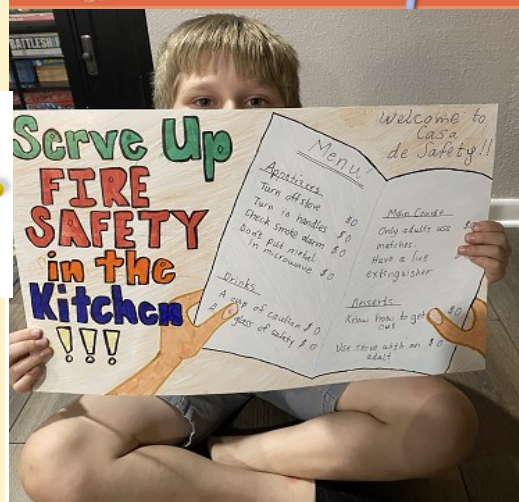 BATTLESHIP
Serve Up
FIRE
SAFETY
in the
Kitchen
!!!
Welcome to
Casa
de Safety!!
Menu!
Appetizers
Turn off stove $0
Turn in handles $0
Check smoke alarm $0
Don't put metal
in microwave $0
Drinks
A cup of caution $0
glass of safety $0
Main Course
Only adults use $0
matches.
Have a fire
extinguisher
Desserts
Know how to get $0
out
Use stove with an $0
adult